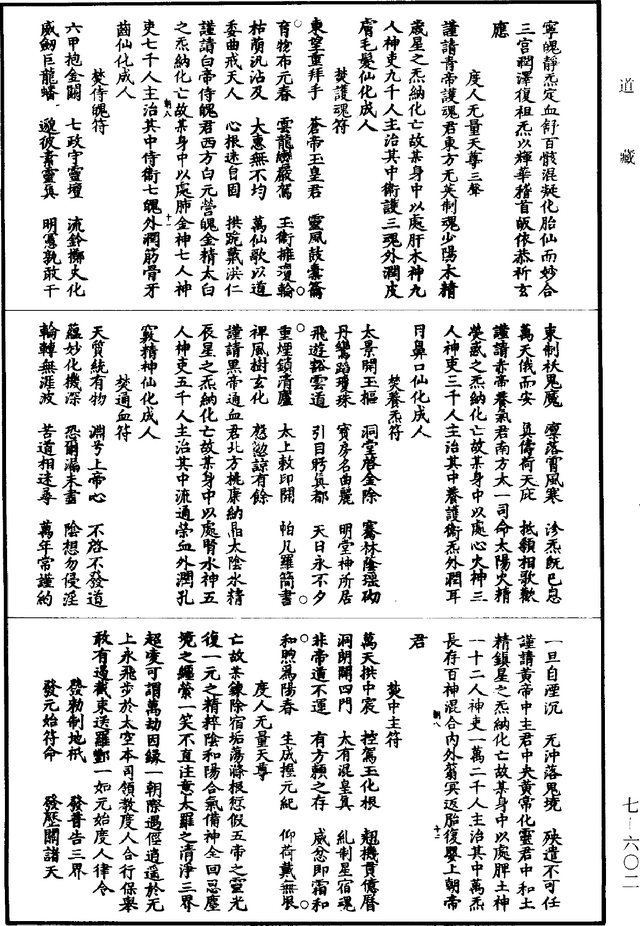 道藏
寧魄靜炁定血舒百骸混凝化胎仙而妙合
三宮潤澤復祖炁以輝華稽首皈依恭祈玄
應
度人无量天尊三聲
謹請青帝護魂君東方无英制魂少陽木精
歲星之炁納化亡故某身中以處肝木神九
人神吏九千人主治其中衛護三魂外潤皮
膚毛髮仙化成人
焚護魂符
東望重拜手 蒼帝玉皇君 靈風鼓橐籥
育物布元春 雲龍巒嚴駕 玉衡擁瓊輪
枯荫汎沾及 大惠無不均 萬仙歌以道
委曲戒天人 心根迷自固 拱跪戴洪仁
謹請白帝侍魄君西方白元營魄金精太白
之炁納化亡故某身中以處肺金神七人神
吏七千人主治其中侍衛七魄外潤筋骨牙
齒仙化成人
焚侍魄符
六甲抱金闕 七政守靈壇 流鈴擲火化
威劒巨龍蟠 邈彼素靈真 明憲孰敢干
東制袄鬼魔 凜落霄風寒 沴炁既已息
萬天俄而安 真儔荷天庇 抵額相歌歡
謹請赤帝養氣君南方太一司命太陽火精
熒惑之炁納化亡故某身中以處心火神三
人神吏三千人主治其中養護衛炁外潤耳
目鼻口仙化成人
焚養炁符
太景開玉樞 洞堂啓金除 騫林蔭瑶砌
丹鸞蹈瓊珠 寶房名曲麗 明堂神所居
飛遊豁雲道 引目盼真都 天日永不夕
重煙鎖清廬 太上敕印開 帕几羅簡書
禆風樹玄化 慇懃諒有餘
謹請黑帝通血君北方桃康納晶太陰水精
辰星之炁納化亡故某身中以處腎水神五
人神吏五千人主治其中流通榮血外潤孔
竅精神仙化成人
焚通血符
天質統有物 淵兮上帝心 不啓不發道
蘊妙化機深 恐爾漏未盡 陰想勿侵淫
輪轉無涯波 苦道相迷尋 萬年常謹約
一旦自湮沉 无沖落鬼境 殃遣不可任
謹請黃帝中主君中央黃常化靈君中和土
精鎮星之炁納化亡故某身中以處脾土神
一十二人神吏一萬二千人主治其中萬炁
長存百神混合內外翁冥返胎復嬰上朝帝
君
焚中主符
萬天拱中宸 控駕玉化根 魁機貫億曆
洞朗開四門 太有混皇真 糺制星宿魂
非帝道不運 有方願之存 威忿即霜和
和煦爲陽春 生成握元紀 仰荷戴無垠
度人无量天尊
亡故某鍊除宿垢蕩滌根愆假五帝之靈光
復一元之精粹陰和陽合氣備神全回惡塵
境之纏縈一笑不直注意太羅之清淨三界
超唆可謂萬劫因緣一朝際遇徑逍遥於无
上永飛步於太空本司領教度人合行保舉
敢有遏截東送羅酆一如元始度人律令
發勅制地祇 發普告三界
發元始符命 發歷關諸天
七—六〇二